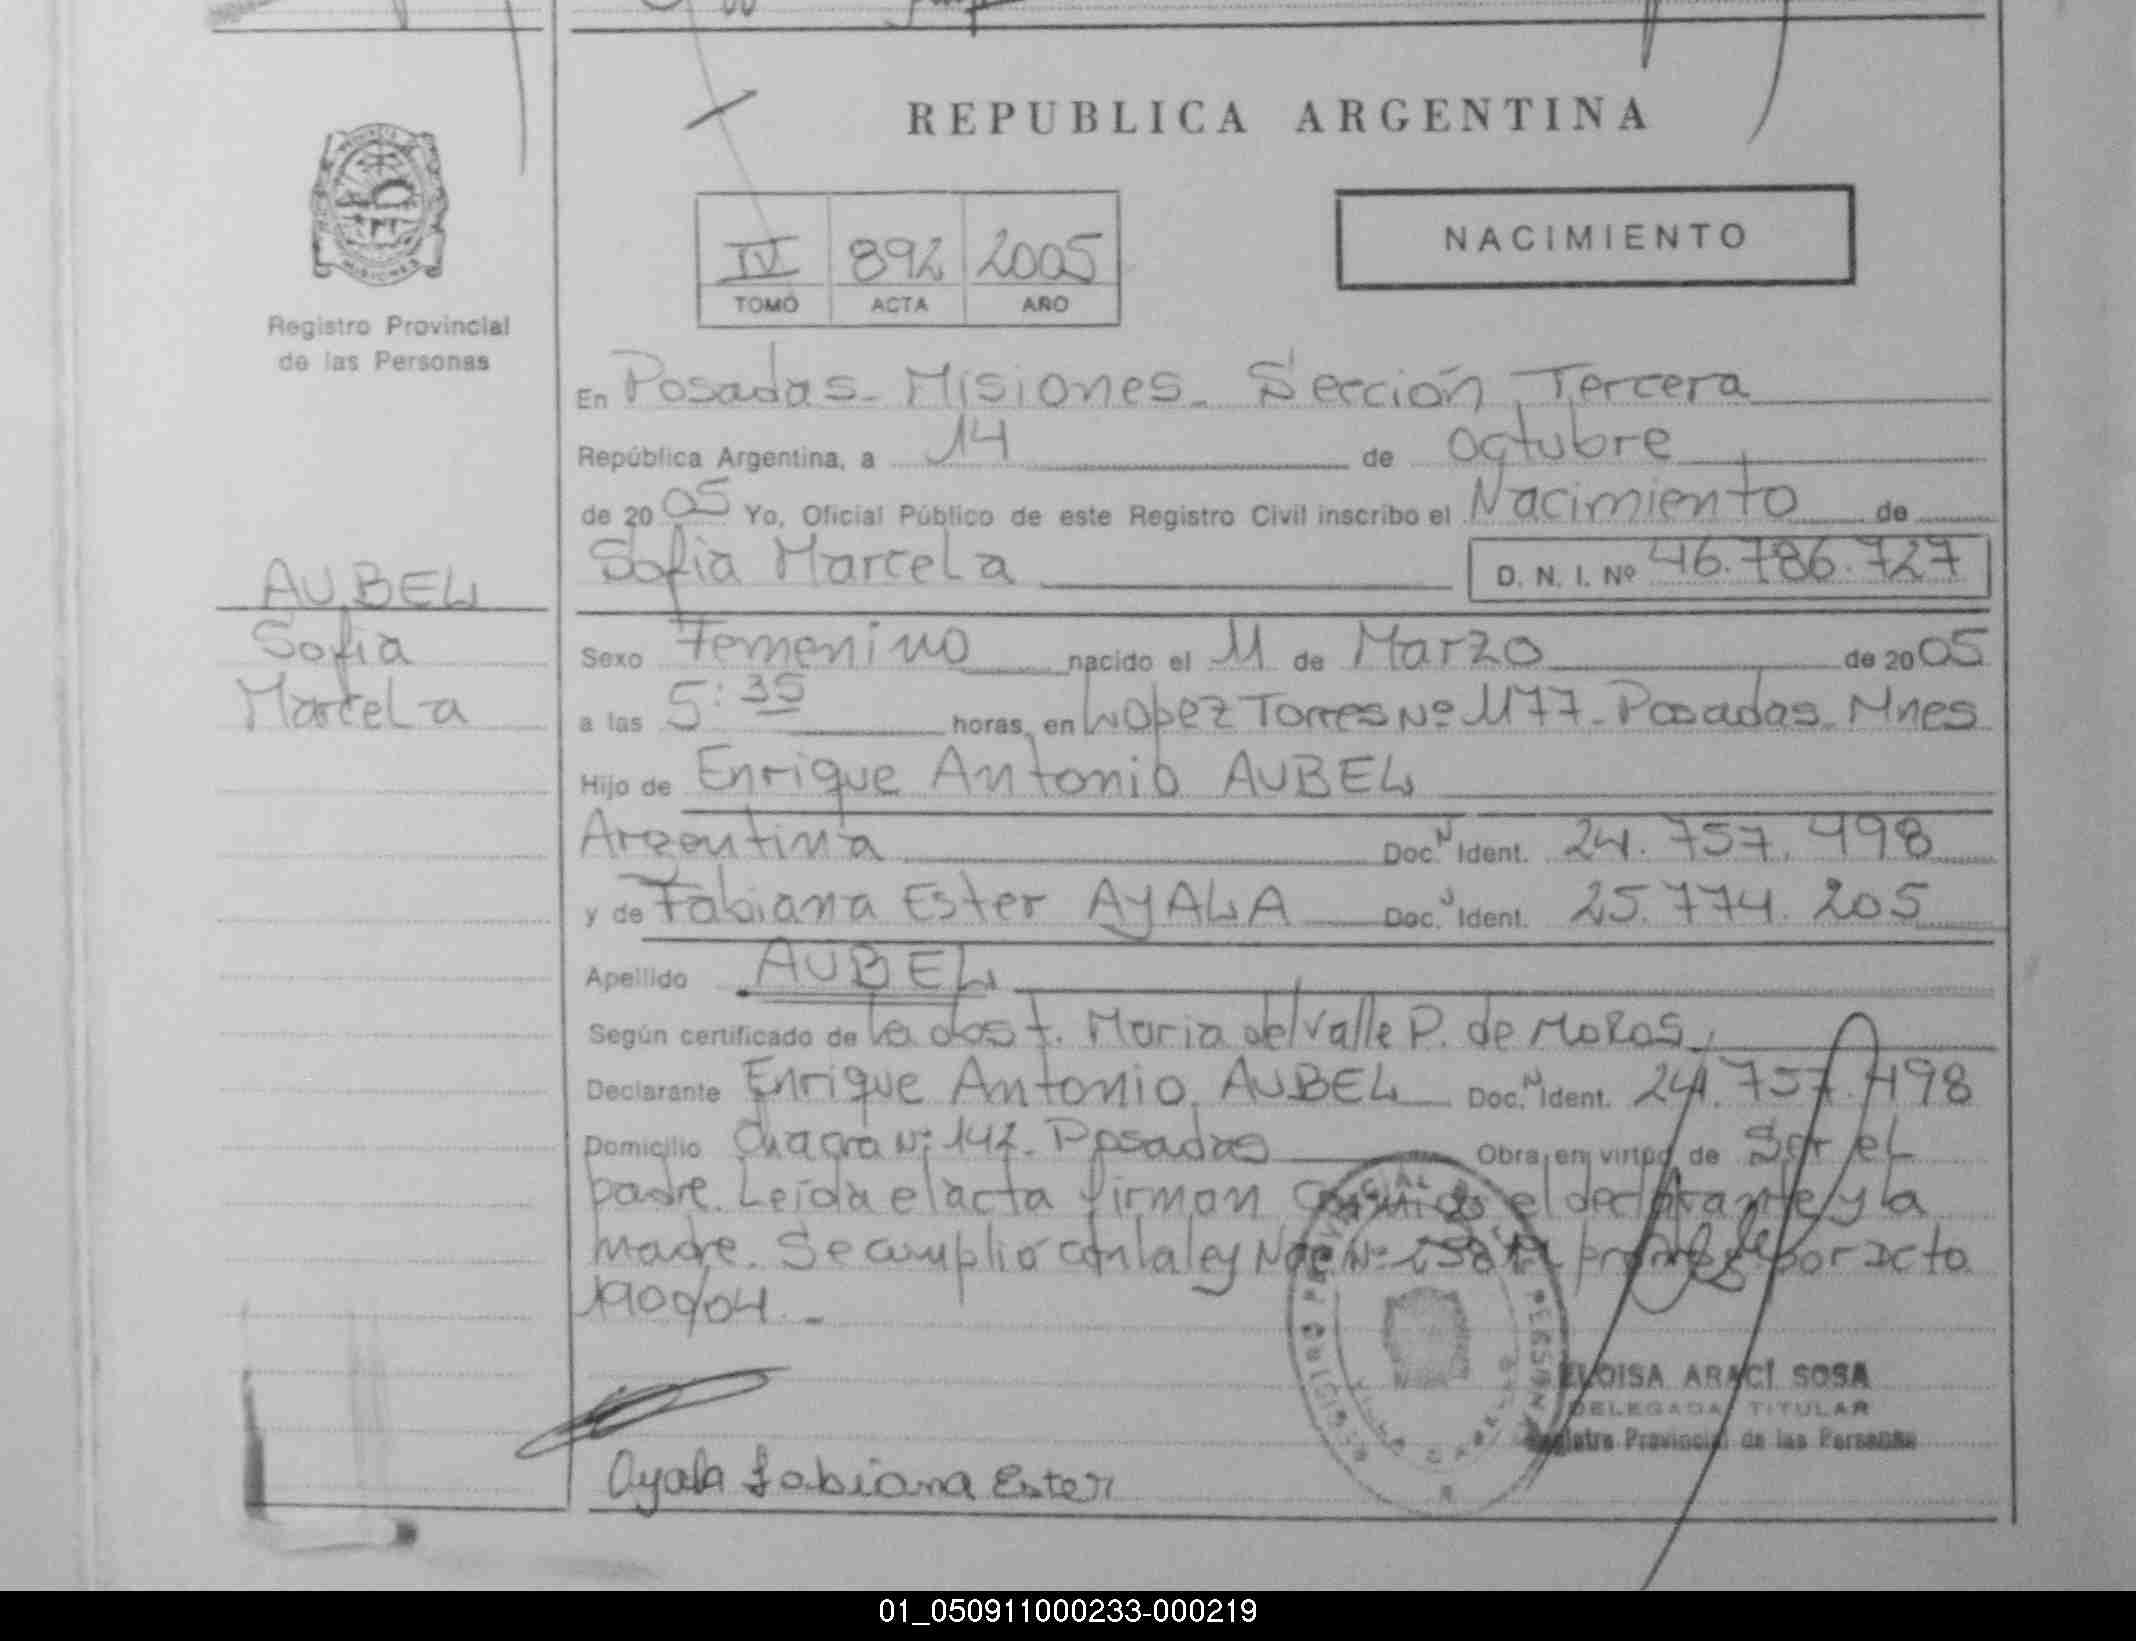 REPUBLICA ARGENTINA
NACIMIENTO
IV 892 2005
TOMO ACTA AÑO
MISIONES
Registro Provincial
de las Personas
AUBEL
Sofia
Marcela
En Posadas - Misiones - Sección Tercera
República Argentina, a 14 de octubre
de 2005 Yo, Oficial Público de este Registro Civil inscribo el Nacimiento de
Sofia Marcela D. N. I. Nº 46.786.727
Sexo Femenino nacido el 11 de Marzo de 2005
a las 5:35 horas, en Lopez Torres Nº 1177 - Posadas - Mnes
Hijo de Enrique Antonio AUBEL
Argentina Doc. N Ident. 24.757.498
y de Fabiana Ester AYALA Doc. Ident. 25.774.205
Apellido AUBEL
Según certificado de la dost. Maria del Valle P. de MoRas,
Declarante Enrique Antonio AUBEL Doc. N Ident. 24.757.498
Domicilio Chacra Nº 147 - Posadas Obra en virtud de Ser el
padre. Leida el acta firman conmigo el declarante y la
madre. Se cumplió con la ley por
190/04. -
Ayala Fabiana Ester
ELOISA ARACÍ SOSA
DELEGADA TITULAR
Registro Provincial de las Personas
01_050911000233-000219